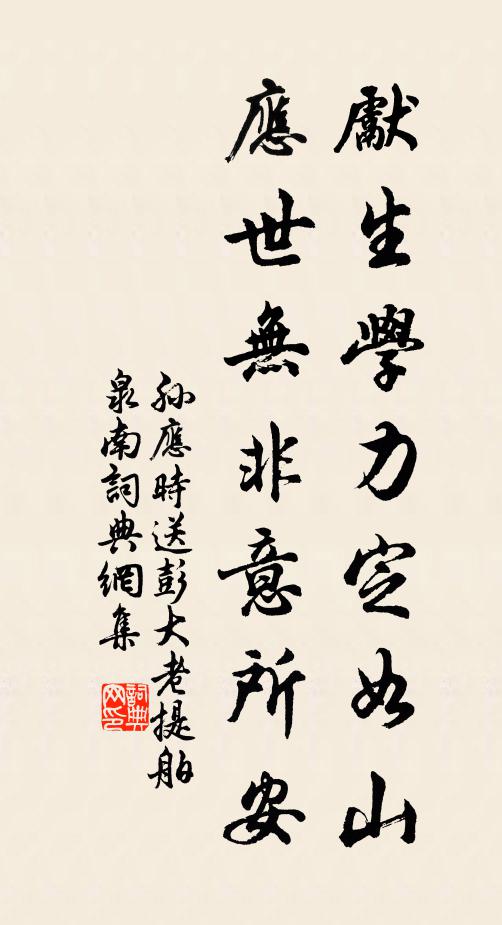 獻生學力定如山
應世無非意所安
孫應時送彭大老提舶
泉南詞典網集
詞典网印